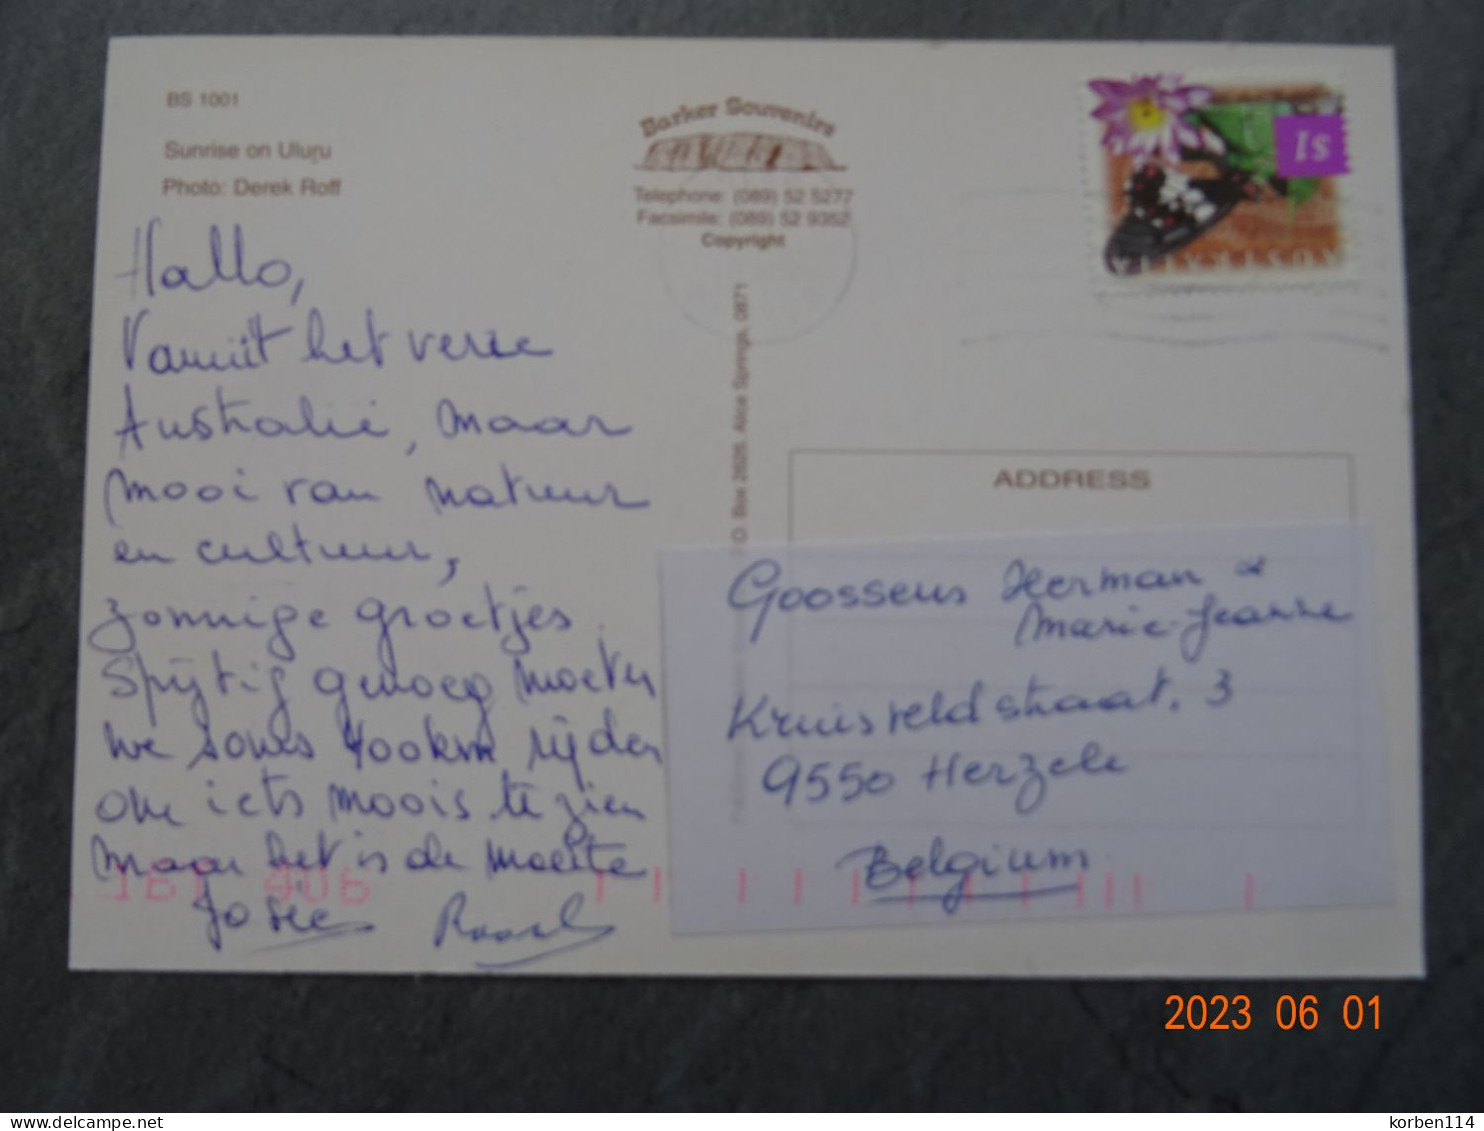 BS 1001
Sunrise on Uluṟu
Photo: Derek Roff
Barker Souvenirs
Telephone: (089) 52 5277
Facsimile: (089) 52 9352
Copyright
O. Box 2020, Alice Springs, 0871
$1
AUSTRALIA
Hallo,
Vanuit het verre
Australië, maar
mooi van natuur
en cultuur,
zonnige groetjes
Spijtig genoeg moeten
we soms 400km rijden
om iets moois te zien
maar het is de moeite
Josée
ADDRESS
Goossens Herman &
Marie-Jeanne
Kruisveldstraat, 3
9550 Herzele
Belgium
2023 06 01
korben114